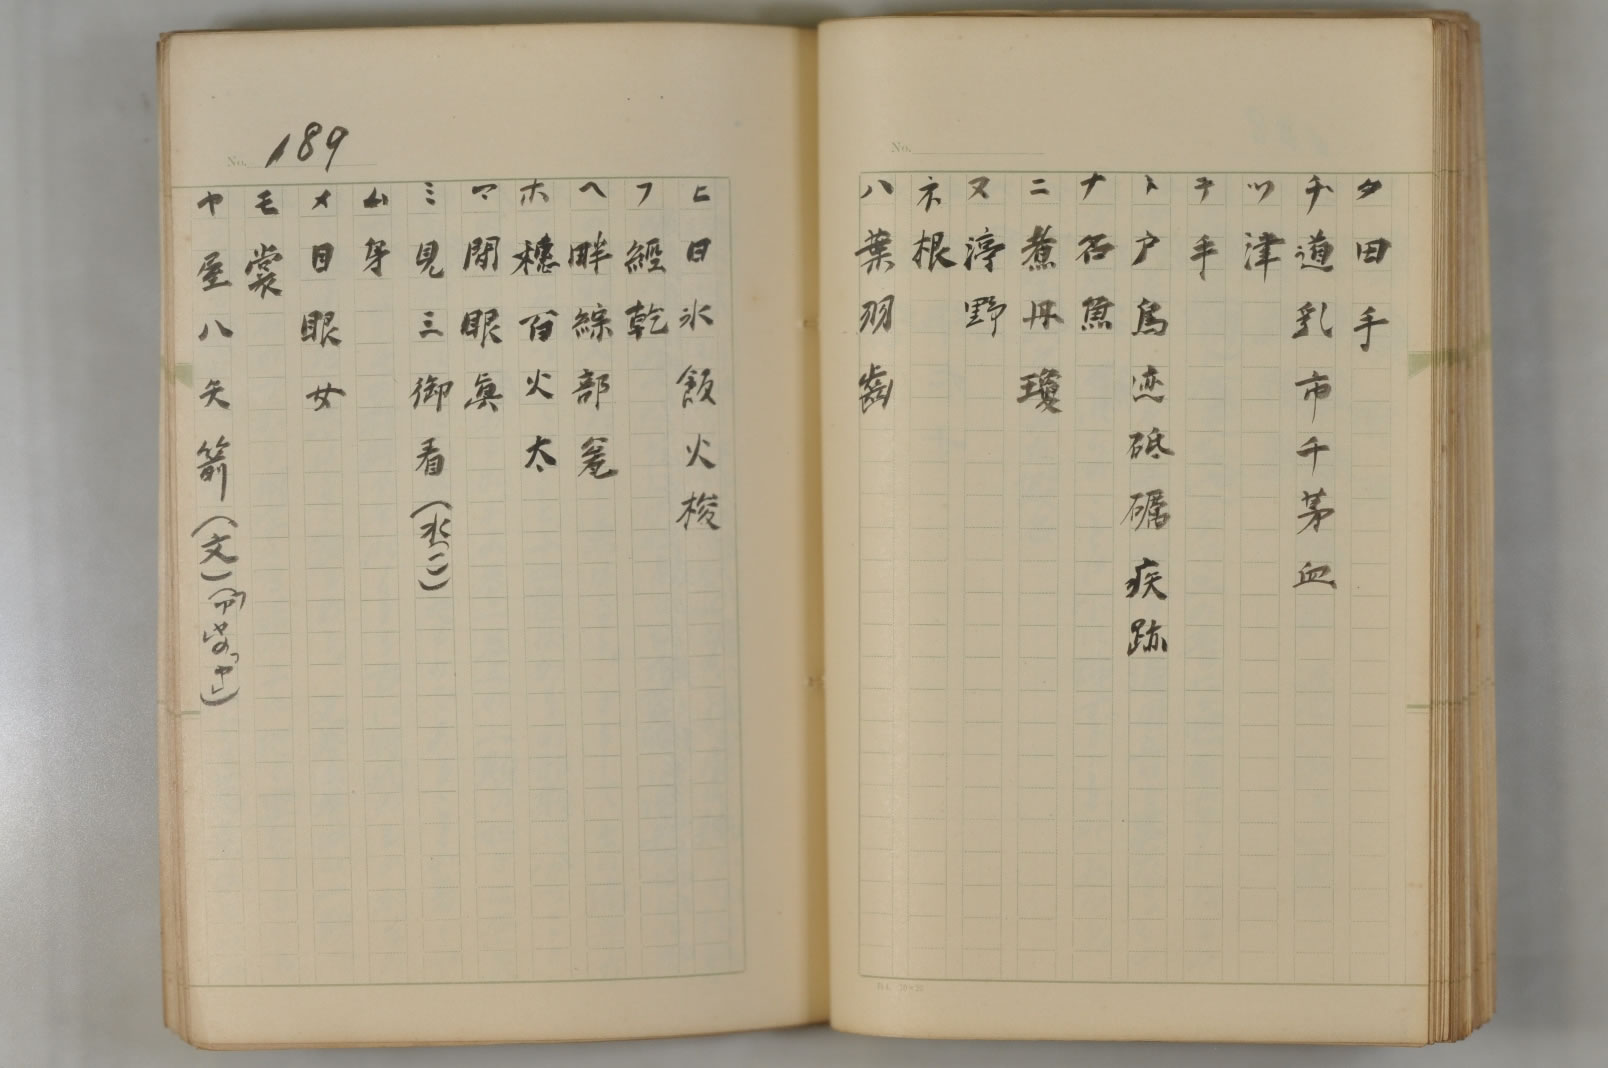 No.
タ田手
チ道乳市千茅血
ツ津
テ手
ト戸鳥迹砥礪疾跡
ナ名魚
ニ煮丹瓊
ヌ渟野
ネ根
ハ葉羽齒
No. 189
ヒ日氷飯火梭
フ經乾
ヘ畔綜部瓮
ホ穗百火太
マ間眼眞
ミ見三御看(水)
ム身
メ目眼女
モ裳
ヤ屋八矢箭(文)